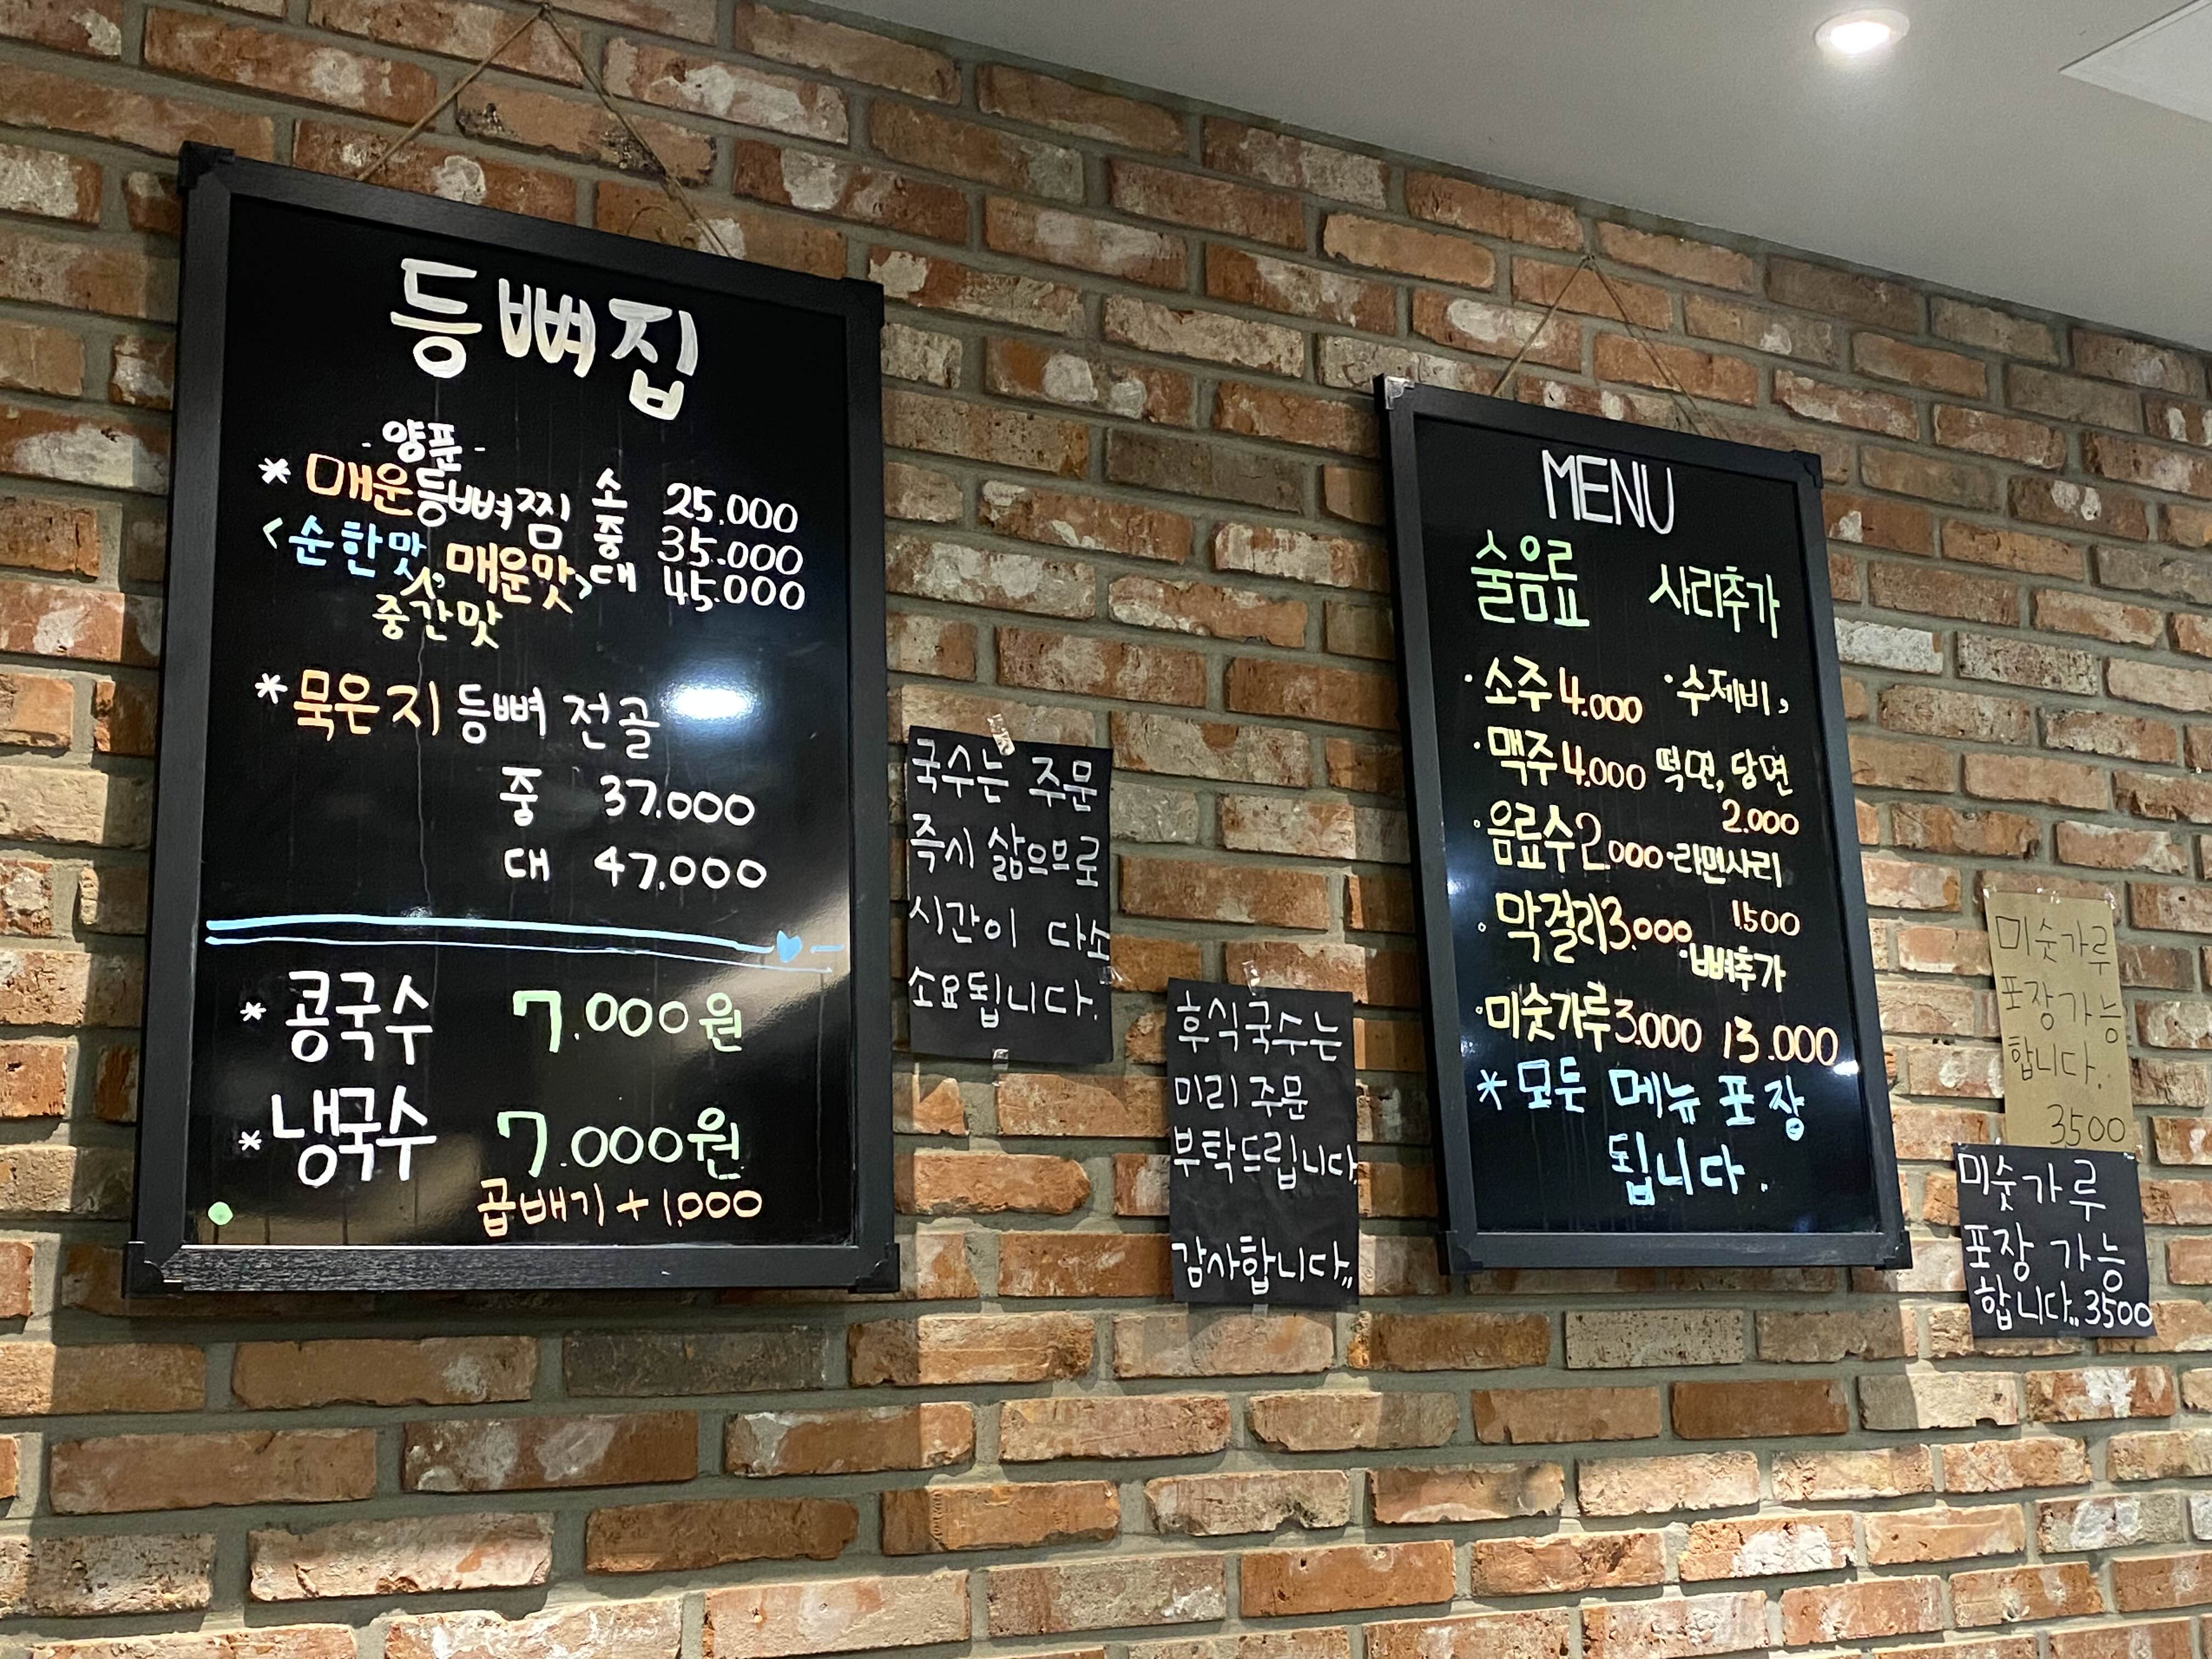 등뼈집
- 양푼 -
* 매운등뼈찜 소 25.000
<순한맛, 매운맛> 중 35.000
중간맛 대 45.000
* 묵은지 등뼈 전골
중 37.000
대 47.000
* 콩국수 7.000원
* 냉국수 7.000원
곱배기 + 1,000
국수는 주문
즉시 삶으므로
시간이 다소
소요됩니다.
후식국수는
미리 주문
부탁드립니다.
감사합니다..
MENU
술음료 사리추가
· 소주 4.000 · 수제비,
· 맥주 4.000 떡면, 당면
2.000
· 음료수 2000 · 라면사리
· 막걸리 3.000 1500
· 뼈추가
· 미숫가루 3.000 13.000
* 모든 메뉴 포장
됩니다.
미숫가루
포장가능
합니다..
3500
미숫가루
포장 가능
합니다.. 3500